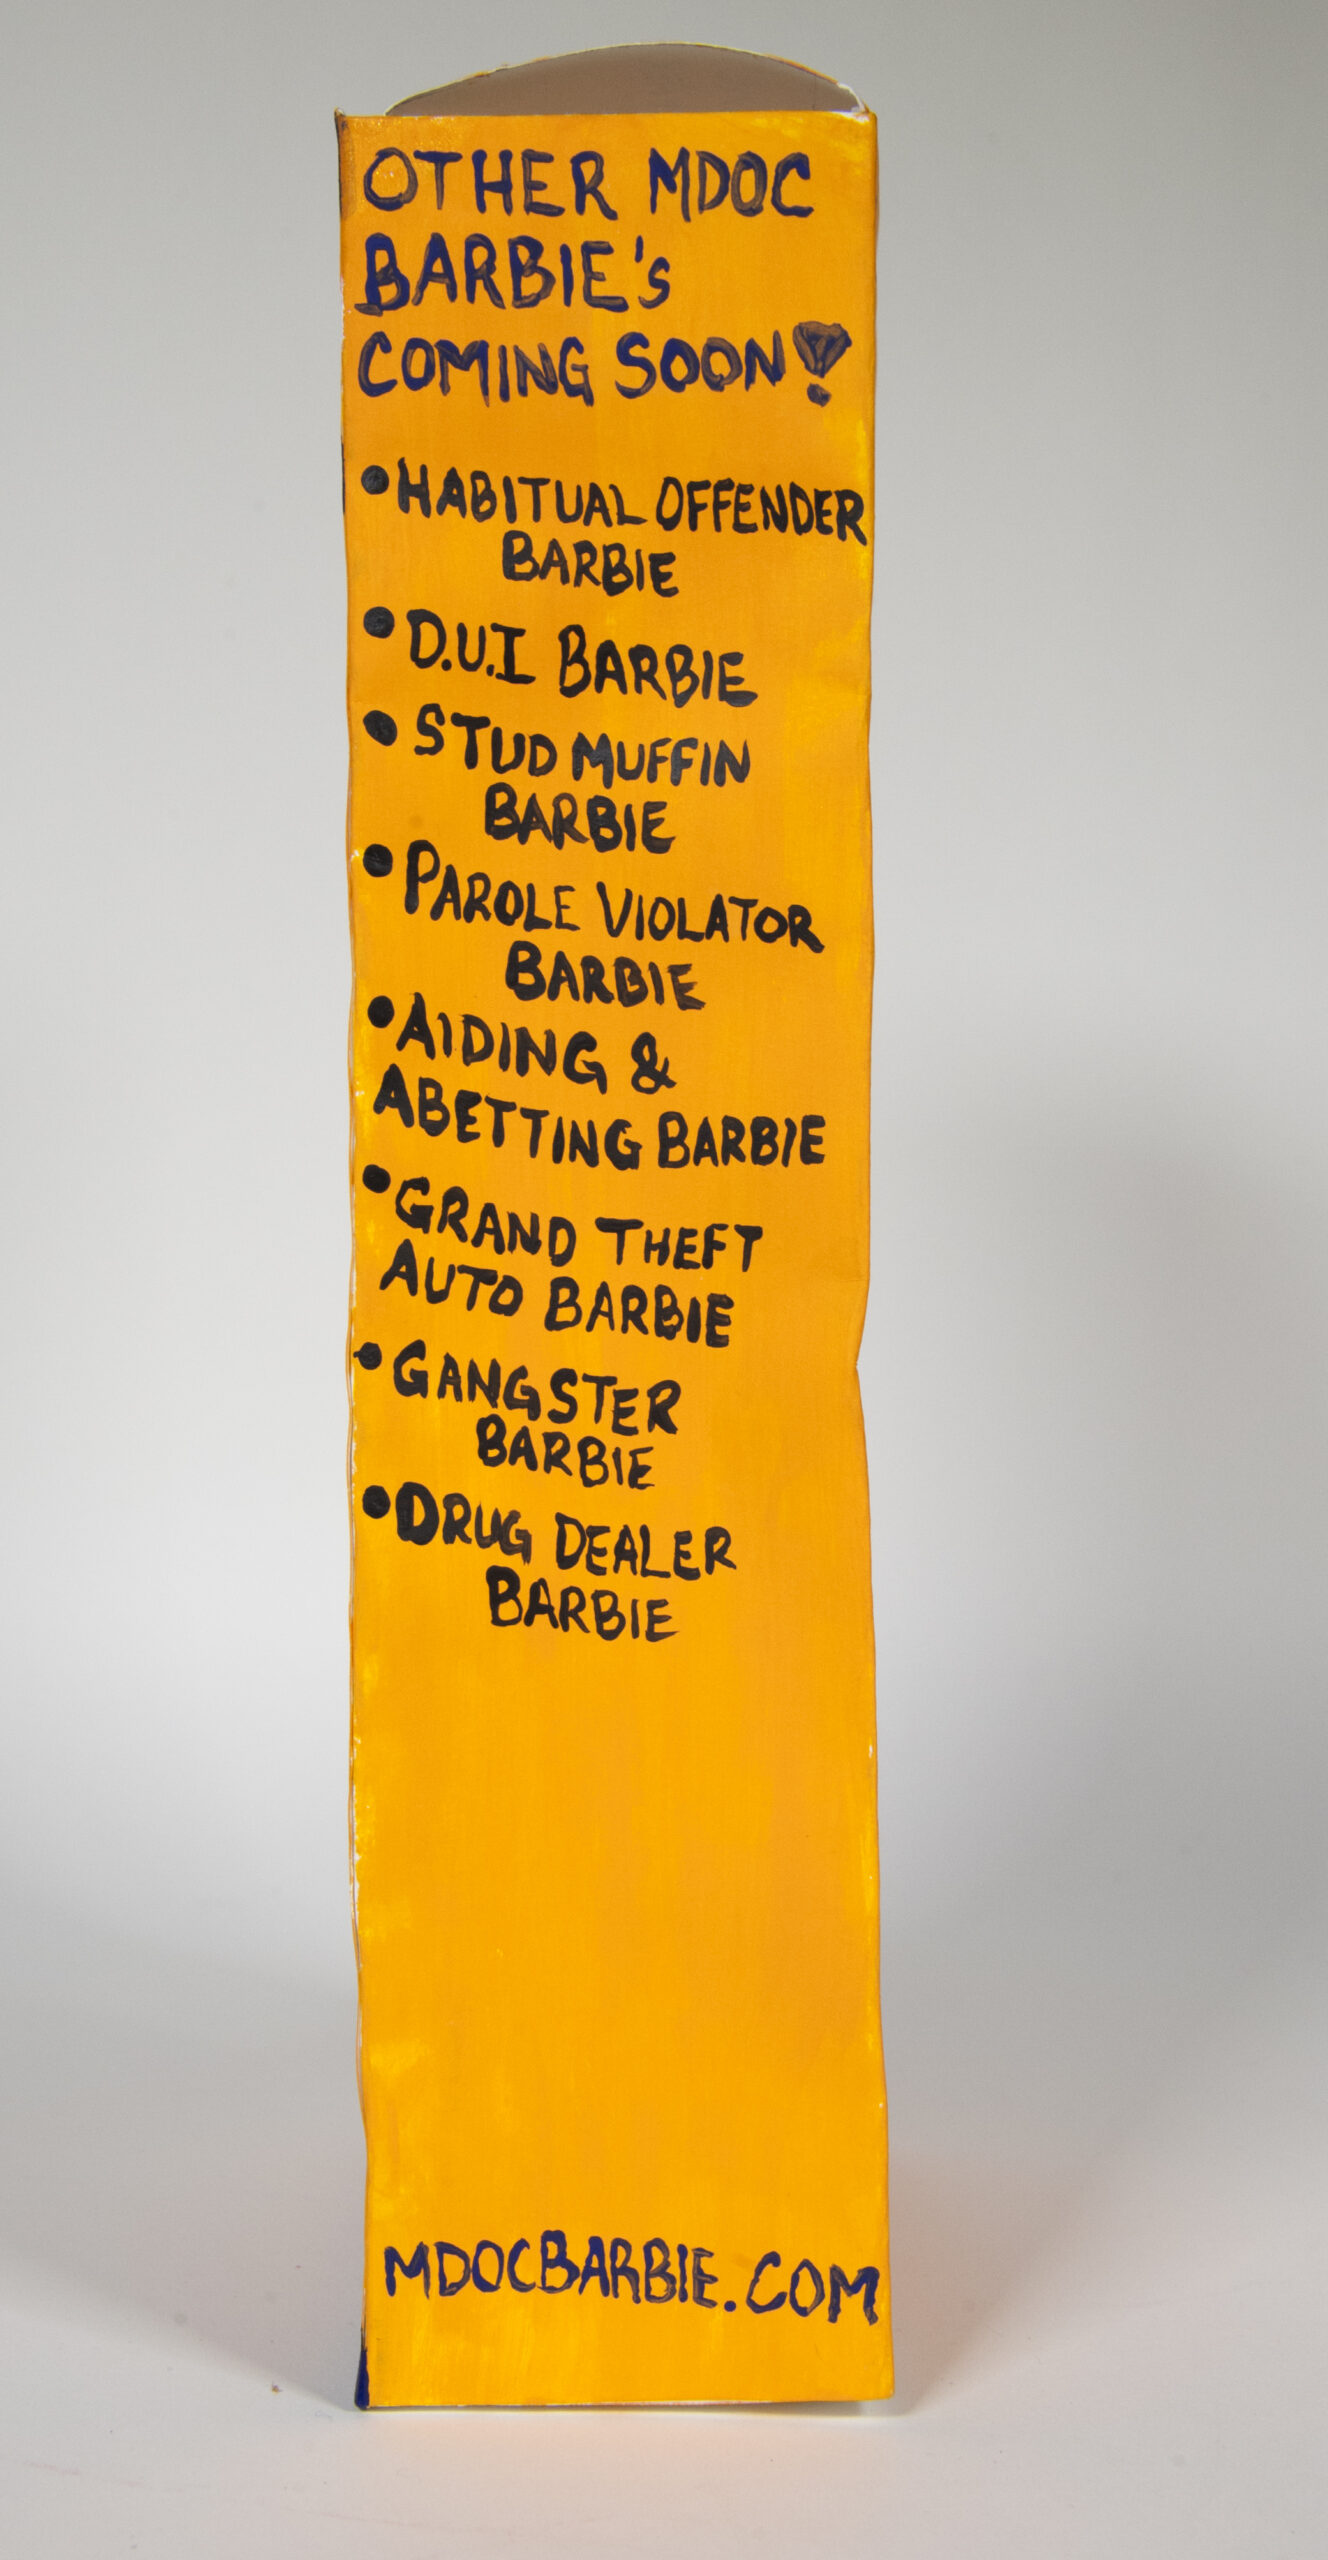 OTHER MDOC
BARBIE's
COMING SOON!
•HABITUAL OFFENDER
BARBIE
•D.U.I BARBIE
•STUD MUFFIN
BARBIE
•PAROLE VIOLATOR
BARBIE
•AIDING &
ABETTING BARBIE
•GRAND THEFT
AUTO BARBIE
•GANGSTER
BARBIE
•DRUG DEALER
BARBIE
MDOCBARBIE.COM